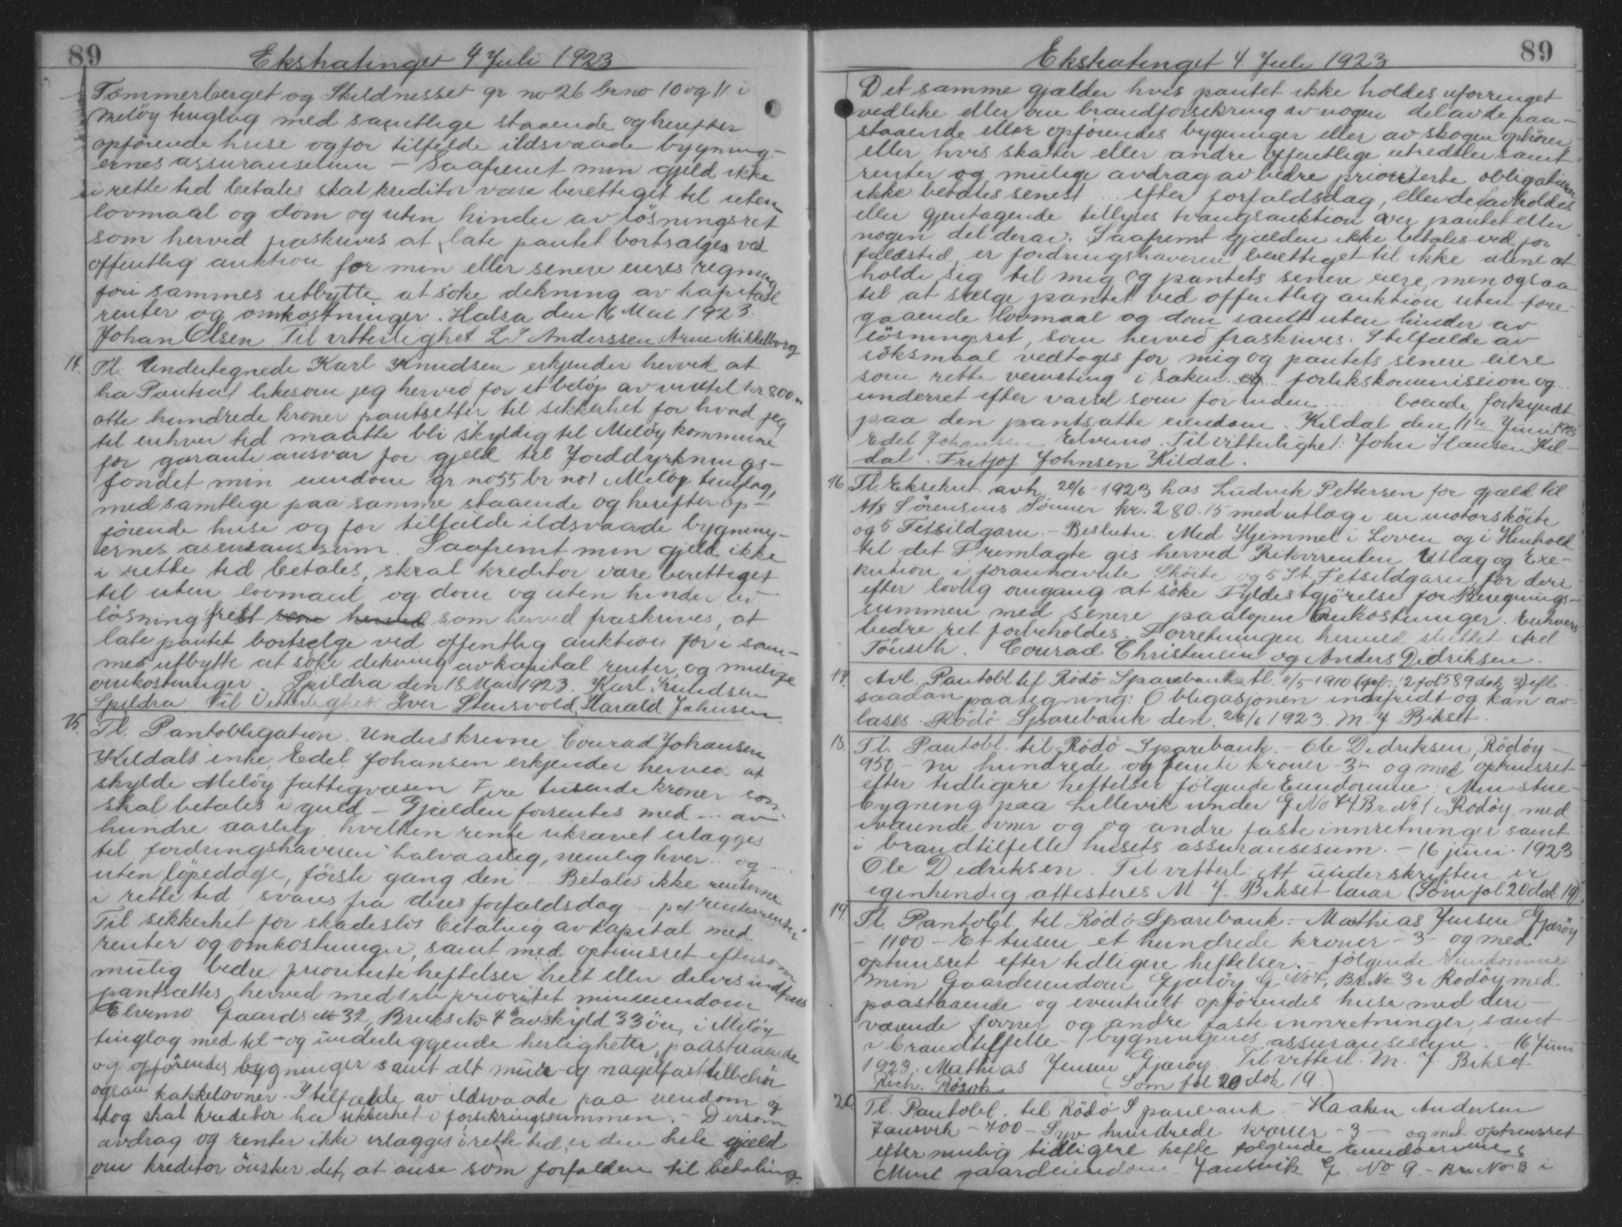 89
Ekstratinget 4 Juli 1923
Tømmerberget og Skildnesset gr no 26 br no 10 og 11 i
Meløy tinglag med samtlige staaende og herefter
opførende huse og for tilfelde ildsvaade bygning-
ernes assuransesum - Saafremt min gjeld ikke
i rette tid betales skal kreditor være berettiget til uten
lovmaal og dom og uten hinder av løsningsret
som herved fraskrives at late pantet bortsælges ved
offentlig auktion for min eller senere eieres regning
for i sammes utbytte at søke dekning av kapital
renter og omkostninger. Halsa den 16 Mai 1923.
Johan Olsen Til vitterlighet L. Anderssen Arne Mikkelborg
14. Tl. Undertegnede Karl Knudsen erkjender herved at
ha Pantsat likesom jeg herved for et beløp av indtil kr 800
otte hundrede kroner pantsetter til sikkerhet for hvad jeg
til enhver tid maatte bli skyldig til Meløy kommune
for garanti ansvar for gjeld til Jorddyrknings-
fondet min eiendom gr no 55 br no 1 Meløy tinglag,
med samtlige paa samme staaende og herefter op-
førende huse og for tilfælde ildsvaade bygning-
ernes assuransesum. Saafremt min gjeld ikke
i rette tid betales, skal kreditor være berettiget
til uten lovmaal og dom og uten hinder av
løsningsfrest som herved som herved fraskrives, at
late pantet bortselge ved offentlig auktion for i sam-
mes utbytte at søke dekning av kapital renter og mulige
omkostninger. Spildra den 18 Mai 1923. Karl Knudsen
Spildra Til Vitterlighet Iver Stensvold, Harald Jahnsen
15. Tl. Pantobligation. Underskrevne Conrad Johansen
Kildals enke, Edel Johansen erkjender herved at
skylde Meløy fattigvæsen Fire tusende kroner som
skal betales i guld - Gjælden forrentes med ... av
hundre aarlig hvilken rente ukrævet erlægges
til fordringshaveren halvaarlig, nemlig hver ... og ...
uten løpedage, første gang den ... Betales ikke renterne
i rette tid svares fra deres forfaldsdag ... pct rentersrenter
Til sikkerhet for skadesløs betaling av kapital med
renter og omkostninger, samt med optrinsret eftersom
mulig bedre prioriterte heftelser helt eller delvis indfries
pantsættes herved med 1ste prioritet min eiendom
Elvemo Gaards No 32, Bruks No 4 avskyld 33 øre, i Meløy
tinglag med til - og underliggende herligheter, paastaaende
og opførendes bygninger samt alt mur - og nagelfast tilbehør
ogsaa kakkelovner. I tilfælde av ildsvaade paa eiendom og
skog skal kreditor ha sikkerhet i forsikringssummen. - Dersom
avdrag og renter ikke erlægges i rette tid, er den hele gjeld
om kreditor ønsker det, at anse som forfalden til betaling.
Ekstratinget 4 Juli 1923
89
Det samme gjælder hvis pantet ikke holdes uforringet
vedlike eller om brandforsikring av nogen del av de paa-
staaende eller opførendes bygninger eller av skogen ophører,
eller hvis skatter eller andre offentlige utredsler samt
renter og mulige avdrag av bedre prioriterte obligationer
ikke betales senest ... efter forfaldsdag, eller der avholdes
eller gjentagende tillyses tvangsauktion over pantet eller
nogen del derav. Saafremt gjælden ikke betales ved for
faldstid, er fordringshaveren berettiget til ikke alene at
holde sig til mig og pantets senere eiere, men ogsaa
til at sælge pantet ved offentlig auktion uten fore-
gaaende lovmaal og dom samt uten hinder av
løsningsret, som herved fraskrives. I tilfælde av
søksmaal vedtages for mig og pantets senere eiere
som rette verneting i saken ... forlikskommission og
underret efter varsel som for inden ... boende forkyndt
paa den pantsatte eiendom. Kildal den 11te Juni 1923
Edel Johansen Elvemo. Til vitterlighet: John Hansen Kil-
dal. Fritjof Johnsen Kildal.
16. Tl. Eksekut. avh. 20/6 - 1923 hos Ludvik Pettersen for gjæld til
A/S Sørensens Sønner kr. 280.15 med utlæg i en motorskøite
og 5 Fetsildgarn. - Beslutn. Med Hjemmel i Loven og i Henhold
til det Fremlagte gis herved Rekvirenten Utlæg og Exe-
kution i forannævnte Skøite og 5 St. Fetsildgarn for deri
efter lovlig omgang at søke Fyldestgjørelse for Beregnings-
summen med senere paaløpen Omkostninger. Enhvers
bedre ret forbeholdes. Forretningen hermed sluttet Axel
Tønseth. Conrad Christensen og Anders Didriksen.
17. Avl. Pantobl. til Rødø Sparebank tl. 2/5 - 1910 fol. 589 dok 3 efl.
saadan paategning: Obligasjonen innfridt og kan av-
læses Rødø Sparebank den 26/6 1923. M. J. Bekset
18. Tl. Pantobl. til Rødø Sparebank. - Ole Didriksen, Rødøy -
950 - ni hundrede og femti kroner - 3 - og med optrinsret
efter tidligere heftelser følgende Eiendomme: Min stue-
bygning paa Lillevik under G No 74 Br. No 1 i Rødøy med
iværende ovner og og andre faste innretninger samt
i brandtilfelle husets assuransesum. - 16 juni 1923
Ole Didriksen. Til vitterl. At underskriften er
egenhendig attesteres M. J. Bekset lærer (Som fol 20 dok 19).
19. Tl. Pantobl. til Rødø Sparebank. - Mathias Jensen Gjærøy
- 1100 - Et tusen et hundrede kroner - 3 - og med
optrinsret efter tidligere heftelser. - følgende Eiendomme
Min Gaardeiendom Gjærøy G. No 4, Br. No 3 i Rødøy med
paastaaende og eventuelt opførendes huse med deri -
værende ovner og andre faste innretninger samt
i brandtilfelle bygningens assuransesum. - 16 Juni
1923. Mathias Jensen Gjærøy. Til vitterl. M. J. Bekset
Rich. Røsvik (Som fol 20 dok 19.)
20. Tl. Pantobl. til Rødø Sparebank. - Haaken Andersen
Jansvik - 700 - Syv hundrede kroner - 3 - og med optrinsret
efter mulig tidligere hefte følgende Eiendomme:
Min gaardeiendom Jansvik G. No 9 - Br. No 3 i